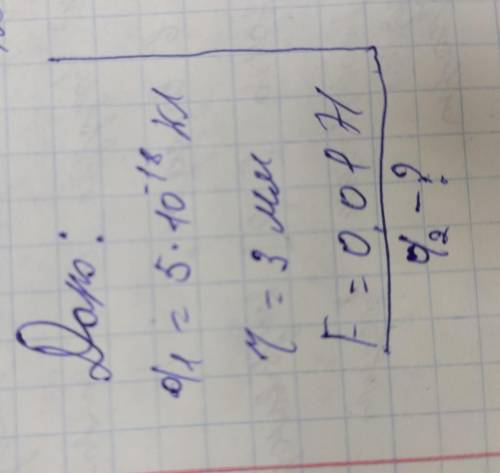 Дано:
q₁ = 5·10⁻¹⁸ Кл
r = 3 мм
F = 0,01 Н
q₂ - ?